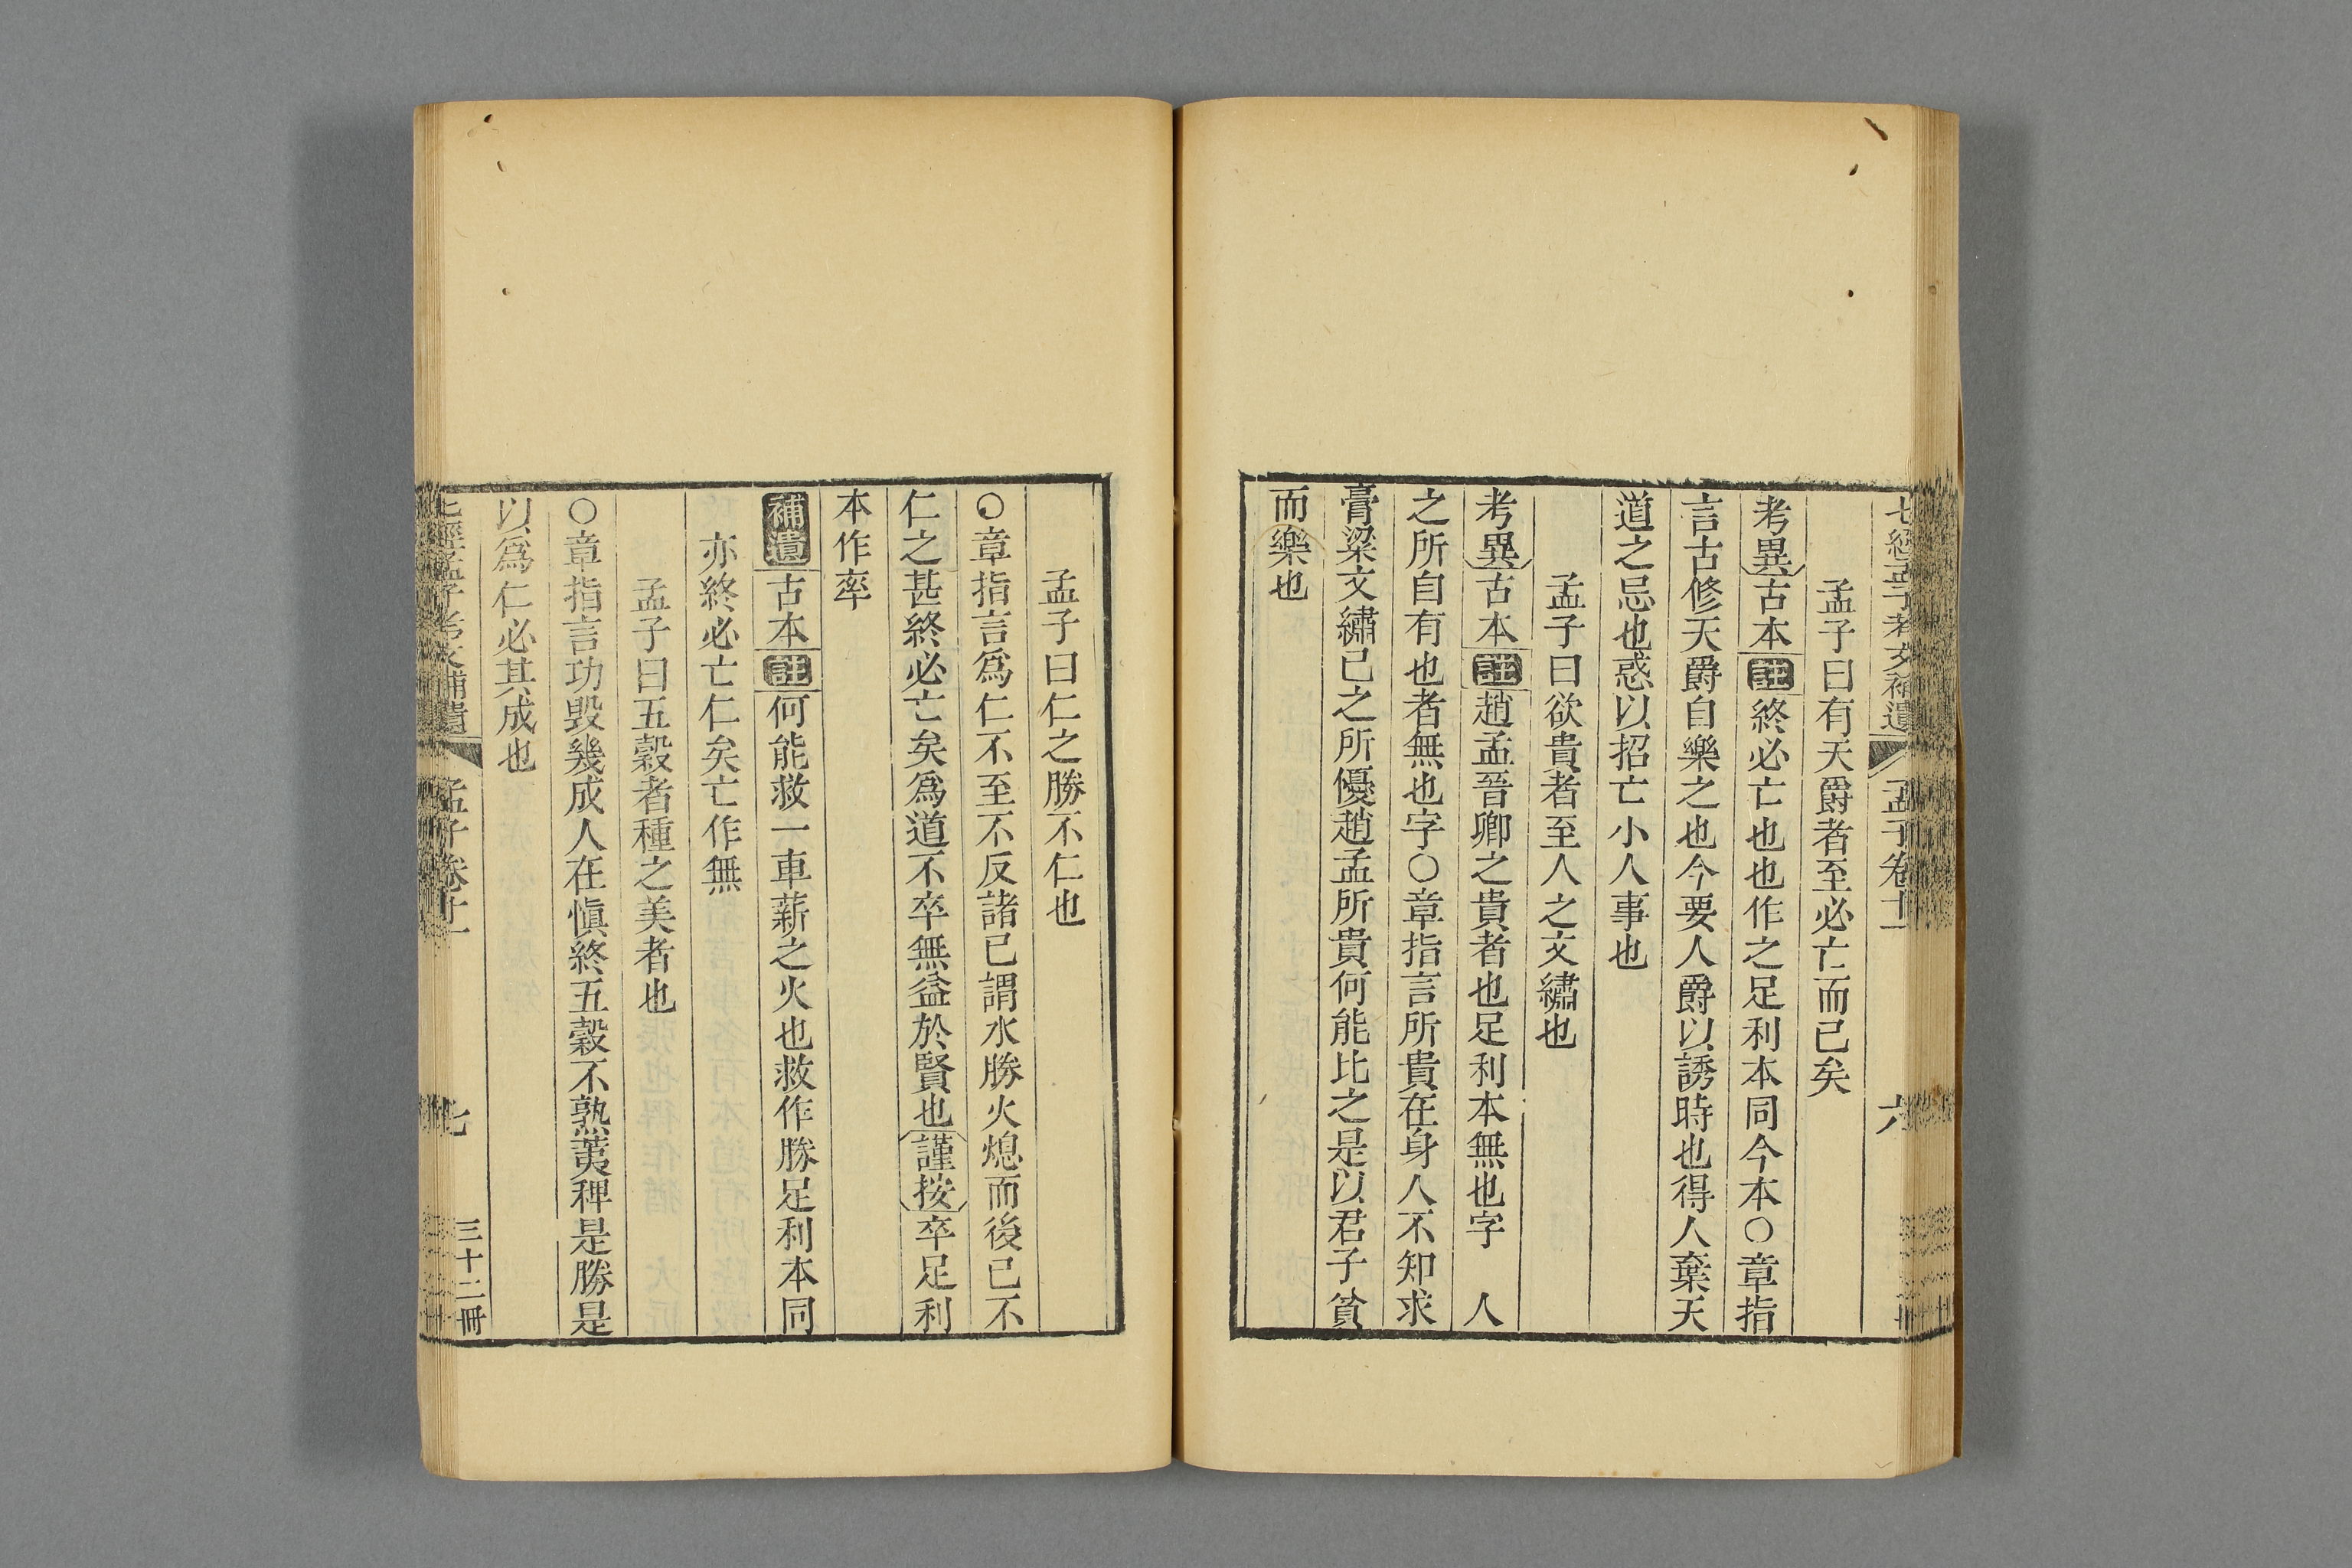 七經孟子考文補遺 孟子卷十一 六
孟子曰有天爵者至必亡而已矣
考異古本註終必亡也也作之足利本同今本○章指
言古修天爵自樂之也今要人爵以誘時也得人棄天
道之忌也惑以招亡小人事也
孟子曰欲貴者至人之文繡也
考異古本註趙孟晉卿之貴者也足利本無也字 人
之所自有也者無也字○章指言所貴在身人不知求
膏粱文繡己之所優趙孟所貴何能比之是以君子貧
而樂也
孟子曰仁之勝不仁也
○章指言爲仁不至不反諸己謂水勝火熄而後已不
仁之甚終必亡矣爲道不卒無益於賢也謹按卒足利
本作率
補遺古本註何能救一車薪之火也救作勝足利本同
亦終必亡仁矣亡作無
孟子曰五穀者種之美者也
○章指言功毀幾成人在慎終五穀不熟荑稗是勝是
以爲仁必其成也
七經孟子考文補遺 孟子卷十一 七 三十二冊